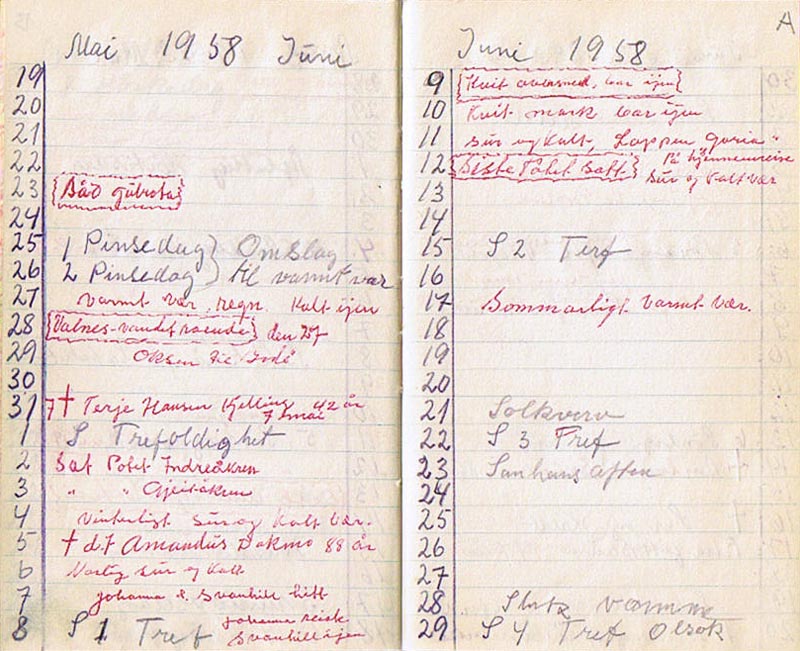 Mai 1958 Juni
19
20
21
22
23 Båd gübrota
24
25 1 Pinsedag } Omslag
26 2 Pinsedag } til varmt vær
27 varmt vær, regn. Kalt ijen
28 Valnes-vandet roende den 27
29 Oksen
30
31 7 † Terje Hansen Kjelling 42 år
7 mai
1 S Trefoldighet
2 Sat Potet Indreåkren
3 " " Gjeitåkren
4 vinterligt sur og kalt vær.
5 † d. Amandus Dokmo 88 år
6 sur og kalt
7 Johanna & Svanhill hitt
8 S 1 Tref Johanna reiste
Svanhill igjen
A
Juni 1958
9 Kvit bar ijen
10 Kvit mark bar ijen
11 sur og kalt, Lappen "Goria"
12 Siste Potet satt På hjemmereise
sur og kalt vær
13
14
15 S 2 Tref
16
17 Sommarligt varmt vær.
18
19
20
21 Solkverv
22 S 3 Tref
23 Sanhans aften
24
25
26
27
28
29 S 4 Tref Olsok